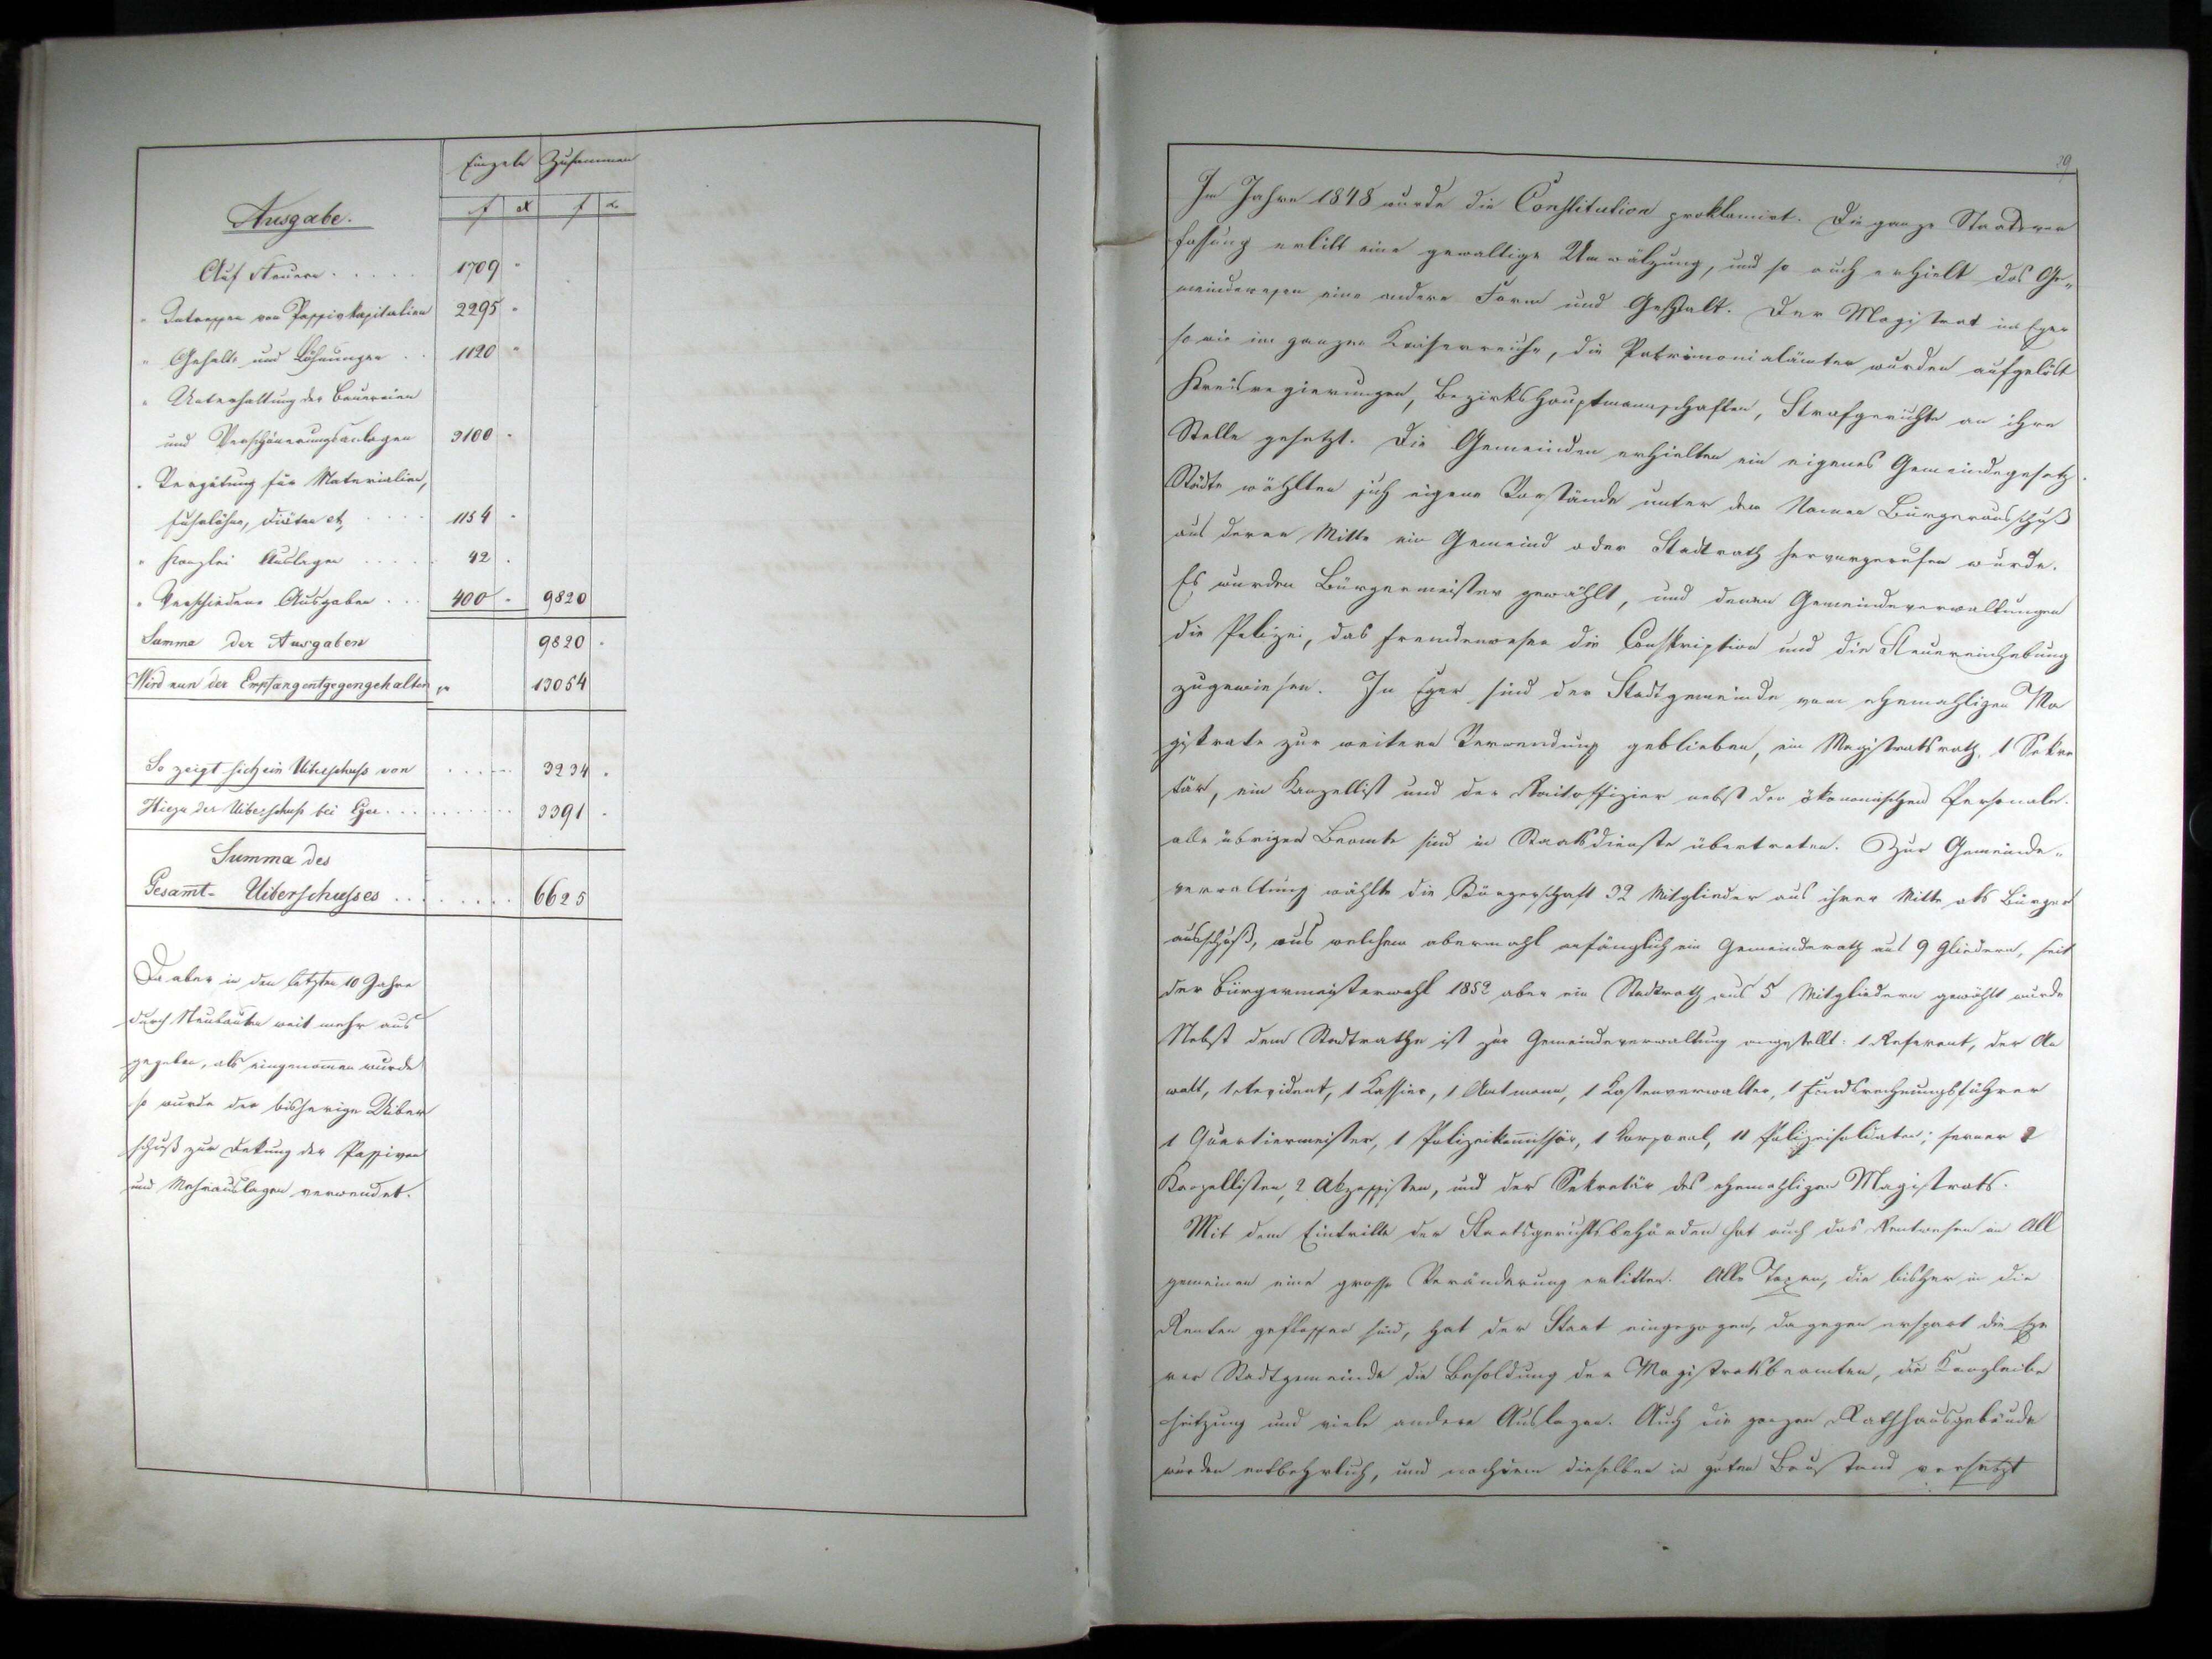 Einzeln Zusammen
Ausgabe. f x f x
Auf Steuern . . . . . 1709 "
" Interessen von Passivkapitalien 2295 "
" Gehalte und Löhnungen . . 1120 "
" Unterhaltung der Bauereien
und Verschönerungsanlagen 3100 "
" Vergütung für Materialien,
Fuhrlöhne, Diäten etz . . . . 1154 "
" Kanzlei Auslagen . . . . . 42 "
" Verschiedene Ausgaben . . . 400 " 9820
Summa der Ausgaben 9820 "
Wird nun der Empfang entgegengehalten pr 13054
So zeigt sich ein Uiberschuß von . . . . . 3234 "
Hiezu der Uiberschuß bei Eger . . . . . . . 3391 "
Summa des
Gesamt- Uiberschußes . . . . . . . 6625
Da aber in den letzten 10 Jahre
durch Neubauten weit mehr aus
gegeben, als eingenomen wurde
so wurde der bisherige Uiber
schuß zur Dekung der Passiven
und Mehrauslagen verwendet.
29
Im Jahre 1848 wurde die Constitution proklamirt. Die ganze Staatsver
fassung erlitt eine gewaltige Umwälzung, und so auch erhielt das Ge„
meindewesen eine andere Form und Gestalt. Der Magistrat in Eger
so wie im ganzen Kaiserreiche, die Patrimonialämter wurden aufgelöst
Kreisregierungen, Bezirkshauptmannschaften, Strafgerichte an ihre
Stelle gesetzt. Die Gemeinden erhielten ein eigenes Gemeindegesetz.
Städte wählten sich eigene Vorstände unter dem Namen Bürgerausschuß
aus deren Mitte ein Gemeind oder Stadtrath hervorgerufen wurde.
Es wurden Bürgermeister gewählt, und denen Gemeindeverwaltungen
die Polizei, das Fremdenwesen die Conskription und die Steuereinhebung
zugewiesen. In Eger sind der Stadtgemeinde vom ehemahligen Ma
gistrate zur weitern Verwendung geblieben, ein Magistratsrath, 1 Sekre
tär, ein Kanzellist und der Raitoffizier nebst den ökonomischen Personale.
alle übrigen Beamte sind in Staatsdienste übertreten. Zur Gemeinde„
verwaltung wählte die Bürgerschaft 32 Mitglieder aus ihrer Mitte als Bürger
ausschuß, aus welchem abermahl anfänglich ein Gemeinderath aus 9 Gliedern, seit
der Bürgermeisterwahl 1852 aber ein Stadtrath aus 5 Mitgliedern gewählt wurde
Nebst dem Stadtrathe ist zur Gemeindeverwaltung angestellt: 1 Referent, der An
walt, 1 Revident, 1 Kassier, 1 Amtmann, 1 Kastenverwalter, 1 Fondsrechnungsführer
1 Quartiermeister, 1 Polizeikommissär, 1 Korporal, 11 Polizeisoldaten; ferner 2
Kanzellisten, 2 Akzessisten, und der Sekretär des ehemahligen Magistrats.
Mit dem Eintritte der Staatsgerichtsbehörden hat auch das Rentwesen im All
gemeinen eine grosse Veränderung erlitten. Alle Taxen, die bisher in die
Renten geflossen sind, hat der Staat eingezogen, dagegen erspart die Ege
rer Stadtgemeinde die Besoldung der Magistratsbeamten, die Kanzleibe
heitzung und viele andere Auslagen. Auch die ganzen Rathhausgebäude
wurden entbehrlich, und nachdem dieselben in guten Baustand versetzt